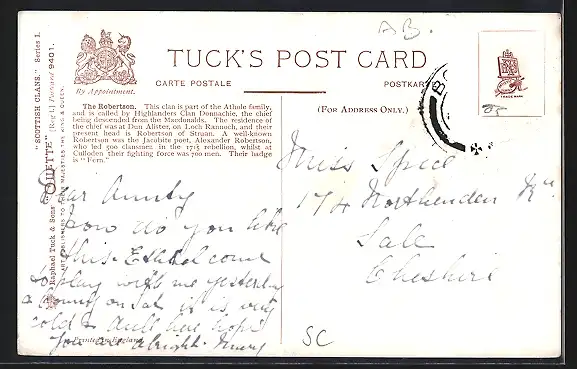 AB.
TUCK'S POST CARD
CARTE POSTALE
POSTKARTE
By Appointment.
(FOR ADDRESS ONLY.)
TRADE MARK
"SCOTTISH CLANS." Series 1.
"OILETTE" [Regd.] Postcard 9401.
Raphael Tuck & Sons'
ART PUBLISHERS TO THEIR MAJESTIES THE KING & QUEEN.
The Robertson. This clan is part of the Athole family,
and is called by Highlanders Clan Donnachie, the chief
being descended from the Macdonalds. The residence of
the chief was at Dun Alister, on Loch Rannoch, and their
present head is Robertson of Struan. A well-known
Robertson was the Jacobite poet, Alexander Robertson,
who led 500 clansmen in the 1715 rebellion, whilst at
Culloden their fighting force was 700 men. Their badge
is "Fern."
Dear Aunty
how do you like
this. Ethel came
to play with me yesterday
& coming on Sat it is very
cold & dull here hope
you are alright. Mary
Printed in England.
Miss Spice
174 Northenden Rd.
Sale
Cheshire
SC